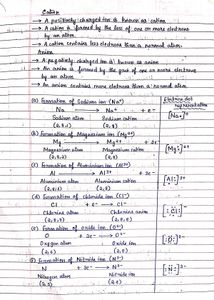 Cation
→ A positively charged ion is known as cation.
→ A cation is formed by the loss of one or more electrons
by an atom.
→ A cation contains less electrons than a normal atom.
Anion
→ A negatively charged ion is known as anion
→ An anion is formed by the gain of one or more electrons
by an atom.
→ An anion contains more electrons than a normal atom.
Electron dot
representation
(a) Formation of Sodium ion (Na⁺)
Na → Na⁺ + e⁻ [Na]⁺
Sodium atom Sodium cation
(2,8,1) (2,8)
(b) Formation of Magnesium ion (Mg²⁺)
Mg → Mg²⁺ + 2e⁻ [Mg]²⁺
Magnesium atom Magnesium cation
(2,8,2) (2,8)
(c) Formation of Aluminium ion (Al³⁺)
Al → Al³⁺ + 3e⁻ [Al]³⁺
Aluminium atom Aluminium cation
(2,8,3) (2,8)
(d) Formation of Chloride ion (Cl⁻)
Cl + e⁻ → Cl⁻ [:Cl:]⁻
Chlorine atom Chlorine anion
(2,8,7) (2,8,8)
(e) Formation of oxide ion (O²⁻)
O + 2e⁻ → O²⁻ [:O:]²⁻
Oxygen atom Oxide ion
(2,6) (2,8)
(f) Formation of Nitride ion (N³⁻)
N + 3e⁻ → N³⁻ [:N:]³⁻
Nitrogen atom Nitride ion
(2,5) (2,8)